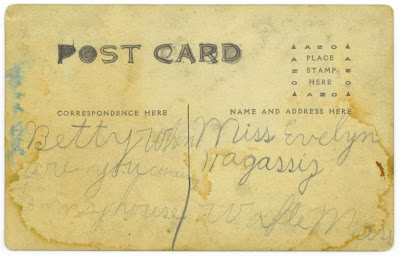 POST CARD
AZO
PLACE
STAMP
HERE
CORRESPONDENCE HERE
NAME AND ADDRESS HERE
Betty When Miss Evelyn
are you coming Nagassiz
to my house